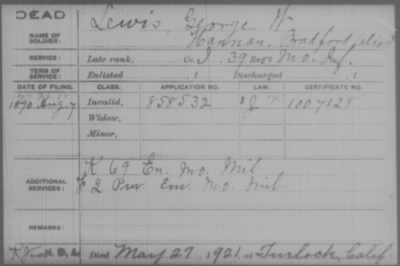 DEAD
NAME OF SOLDIER: Lewis, George W
Hannan, Bradford, alias
SERVICE: Late rank, Co. I, 39 Reg't Mo. Inf.
TERM OF SERVICE: Enlisted , 1 Discharged , 1
DATE OF FILING. CLASS. APPLICATION NO. LAW. CERTIFICATE NO.
1890 Aug. 7 Invalid, 858532 J 1007128
Widow,
Minor,
K 69 En. Mo. Mil
ADDITIONAL SERVICES: F 2 Prov. Enr. Mo. Mil.
REMARKS:
Died May 27, 1921, at Turlock, Calif